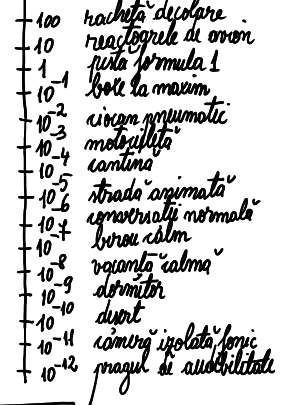 100 rachetă decolare
10 reactoarele de avion
1 pistă formula 1
10⁻¹ boxe la maxim
10⁻² ciocan pneumatic
10⁻³ motocicletă
10⁻⁴ cantină
10⁻⁵ stradă animată
10⁻⁶ conversații normală
10⁻⁷ birou calm
10⁻⁸ vacanță calmă
10⁻⁹ dormitor
10⁻¹⁰ deșert
10⁻¹¹ cameră izolată fonic
10⁻¹² pragul de audibilitate